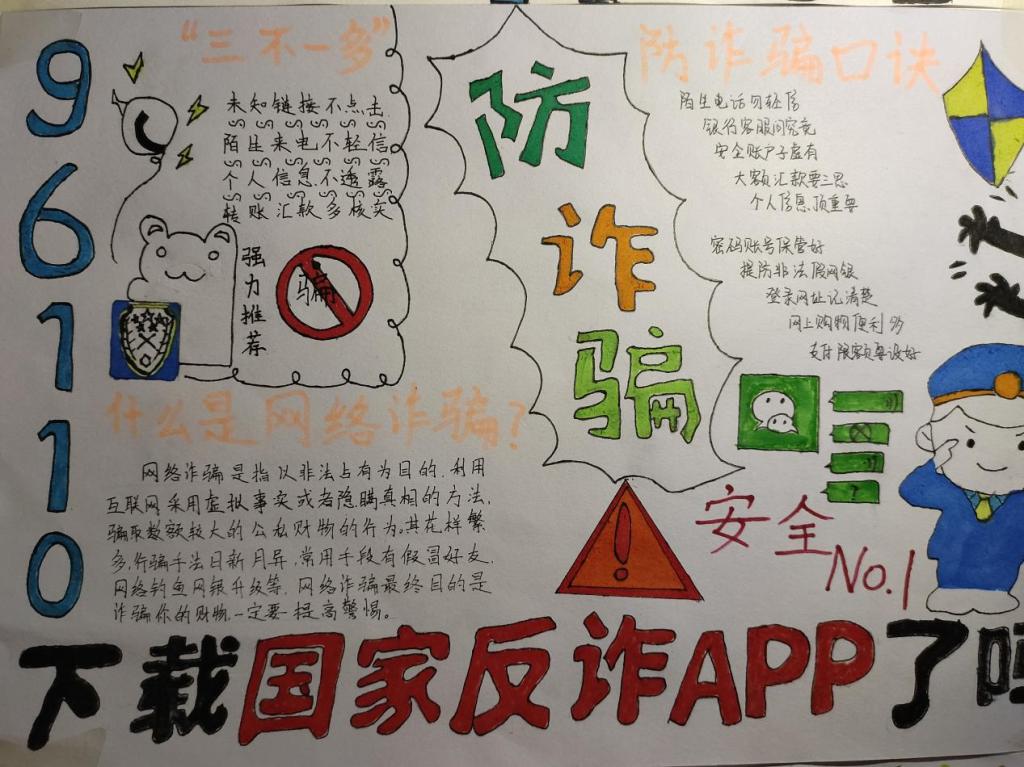 96110
“三不一多”
未知链接不点击
陌生来电不轻信
个人信息不透露
转账汇款多核实
强力推荐
骗
什么是网络诈骗?
网络诈骗是指以非法占有为目的.利用
互联网采用虚拟事实或者隐瞒真相的方法,
骗取数额较大的公私财物的行为。其花样繁
多,行骗手法日新月异,常用手段有假冒好友、
网络钓鱼网银升级等.网络诈骗最终目的是
诈骗你的财物.一定要提高警惕。
防诈骗
防诈骗口诀
陌生电话勿轻信
银行客服问究竟
安全账户子虚有
大额汇款要三思
个人信息顶重要
密码账号保管好
提防非法假网银
登录网址记清楚
网上购物便利多
支付限额要设好
?
!
安全
No.1
下载国家反诈APP了吗